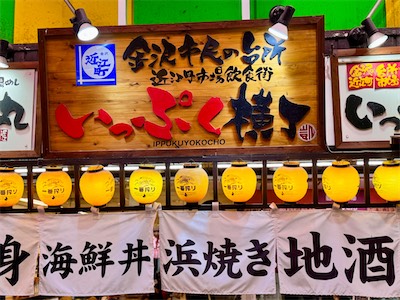 近江町
金沢市民の台所
近江町市場飲食街
いっぷく横丁
IPPUKUYOKOCHO
金沢市民の台所
一番搾り 一番搾り 一番搾り 一番搾り 一番搾り 一番搾り 一番搾り
身 海鮮丼 浜焼き 地酒